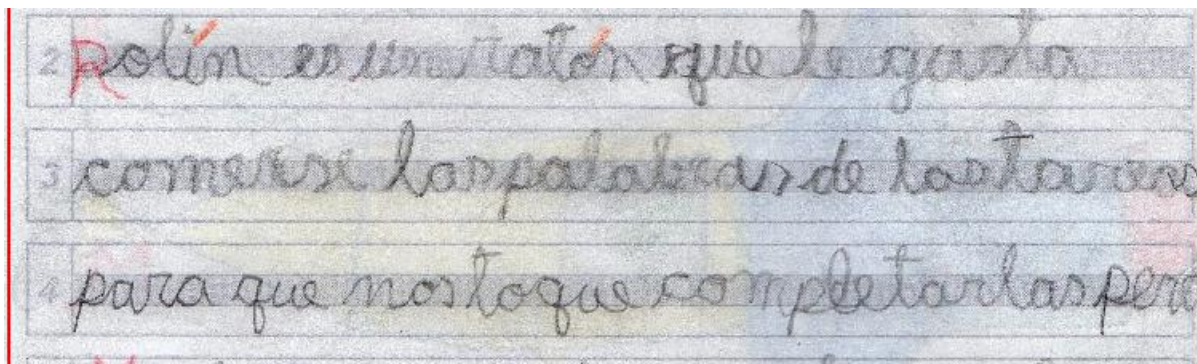 2 Rolín es un ratón que le gusta
3 comerse las palabras de las tareas
4 para que nos toque completarlas pero